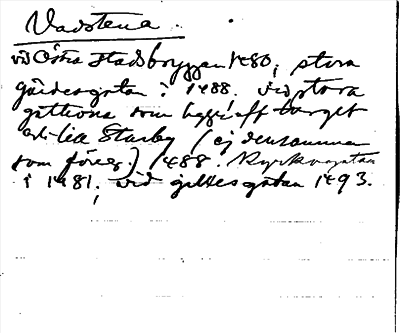 Vadstena.
vid Östra stadsbryggan 1480; stora
gårdesgatan i 1488. vid stora
gathona som ligger åt torget
och lia Starby (ej densamma
som föreg.) 1488. Kyrkogatan
i 1481; vid gillesgatan 1493.